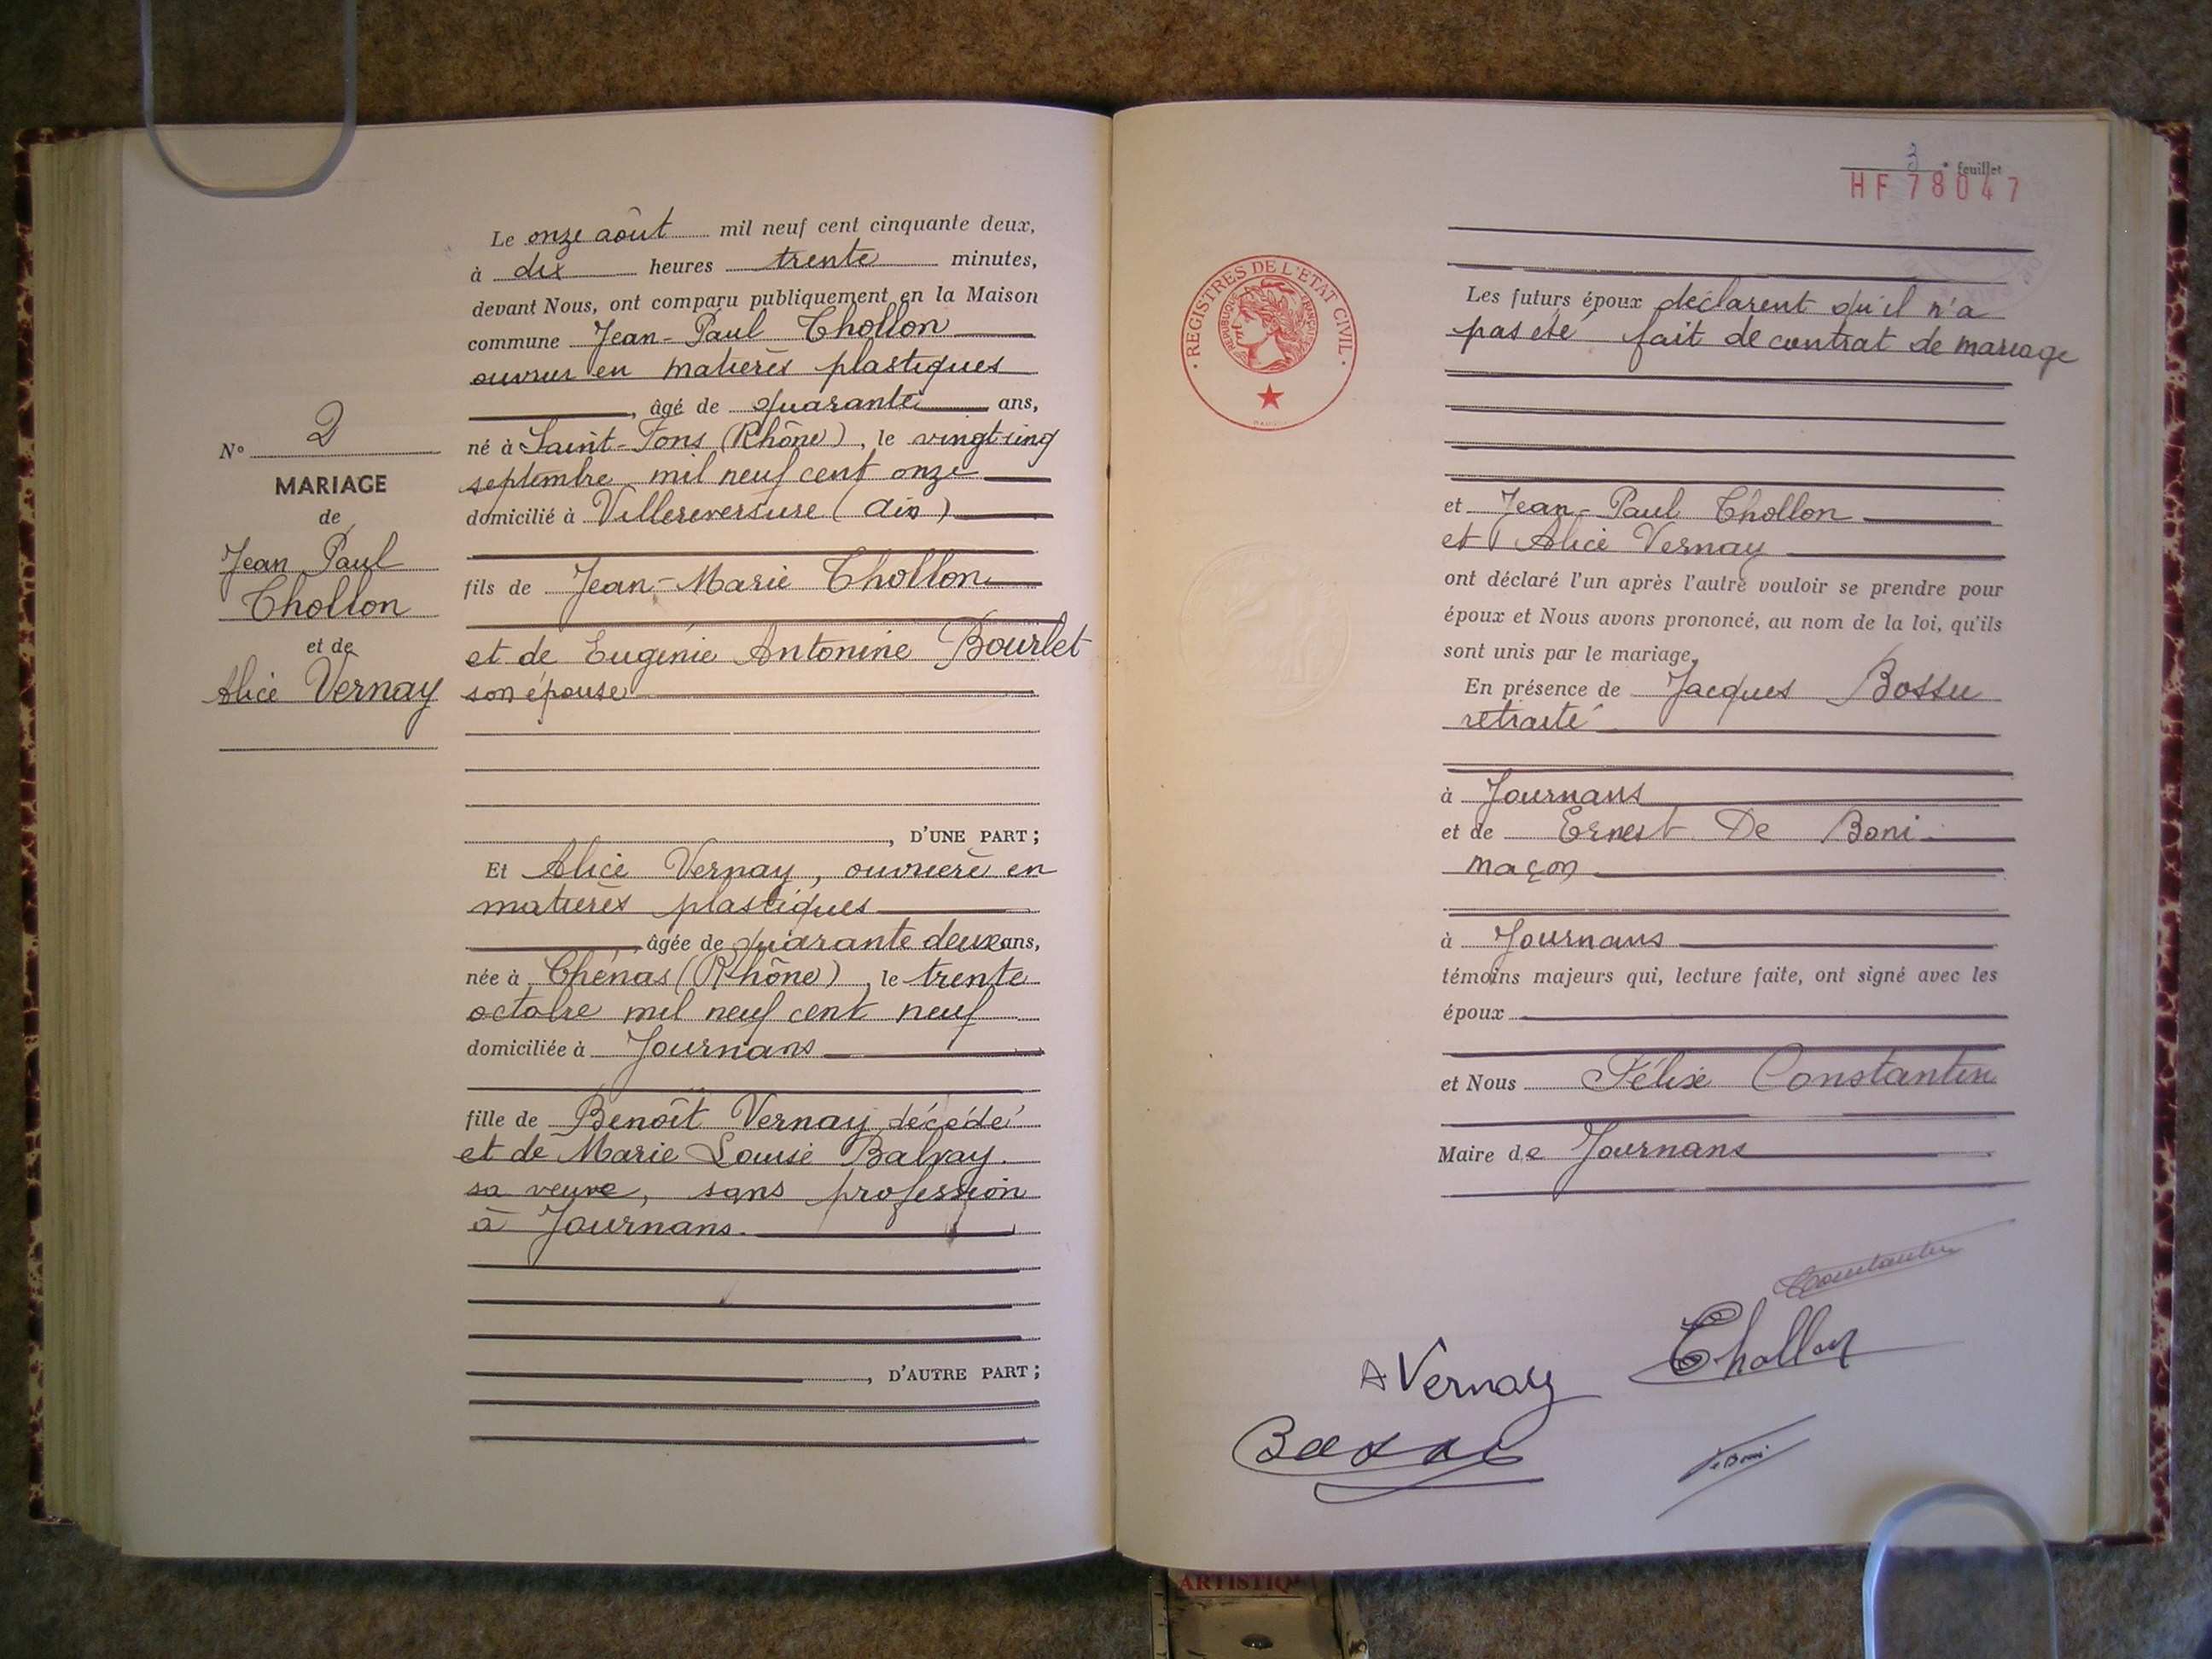 Le onze août mil neuf cent cinquante deux,
à dix heures trente minutes,
devant Nous, ont comparu publiquement en la Maison
commune Jean-Paul Chollon
ouvrier en matières plastiques
, âgé de quarante ans,
né à Saint-Fons (Rhône), le vingt cinq
septembre mil neuf cent onze
domicilié à Villereversure (Ain)
fils de Jean-Marie Chollon
et de Eugénie Antonine Bourlet
son épouse
, D'UNE PART ;
Et Alice Vernay, ouvrière en
matières plastiques
âgée de quarante deux ans,
née à Chénas (Rhône), le trente
octobre mil neuf cent neuf
domiciliée à Journans
fille de Benoît Vernay décédé
et de Marie Louise Balvay.
sa veuve, sans profession
à Journans.
, D'AUTRE PART ;
N° 2
MARIAGE
de
Jean Paul
Chollon
et de
Alice Vernay
3e feuillet
HF 78047
REGISTRES DE L'ETAT CIVIL
REPUBLIQUE FRANÇAISE
Les futurs époux déclarent qu'il n'a
pas été fait de contrat de mariage
et Jean-Paul Chollon
et Alice Vernay
ont déclaré l'un après l'autre vouloir se prendre pour
époux et Nous avons prononcé, au nom de la loi, qu'ils
sont unis par le mariage.
En présence de Jacques Bossu
retraité
à Journans
et de Ernest De Boni
maçon
à Journans
témoins majeurs qui, lecture faite, ont signé avec les
époux
et Nous Félix Constantin
Maire de Journans
Constantin
A Vernay Chollon
Bossu
De Boni
ARTISTIQ